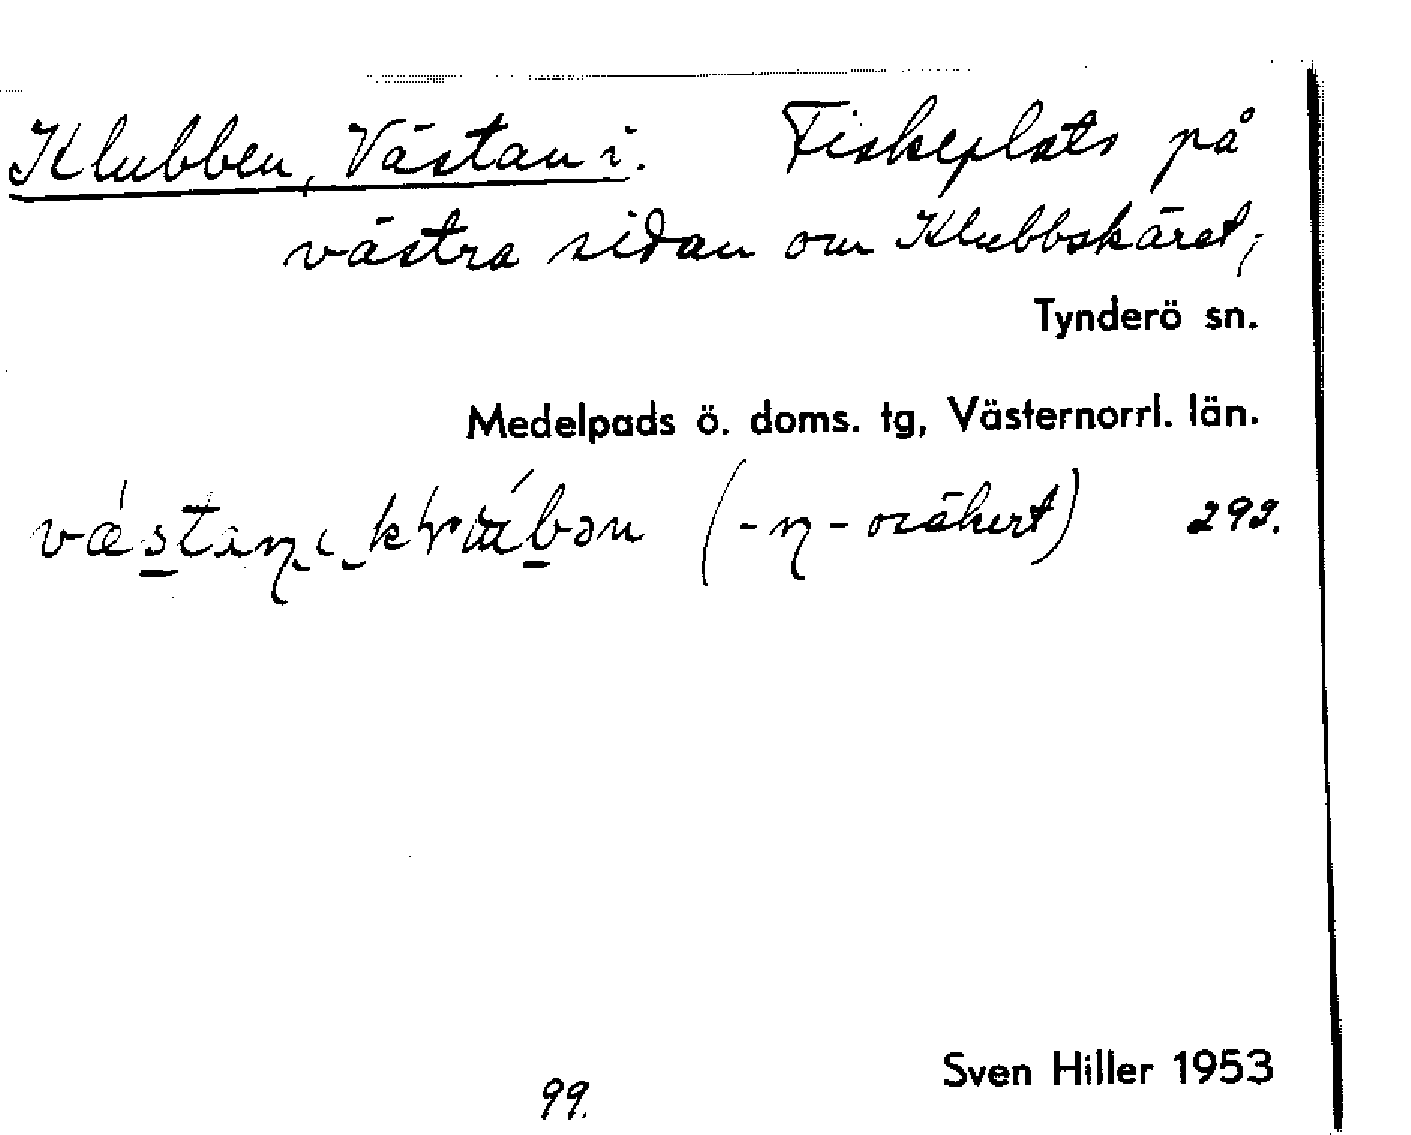 Klubben, Västan i. Fiskeplats på
västra sidan om Klubbskäret,
Tynderö sn.
Medelpads ö. doms. tg, Västernorrl. län.
(-ŋ- osäkert) 292.
Sven Hiller 1953
99.